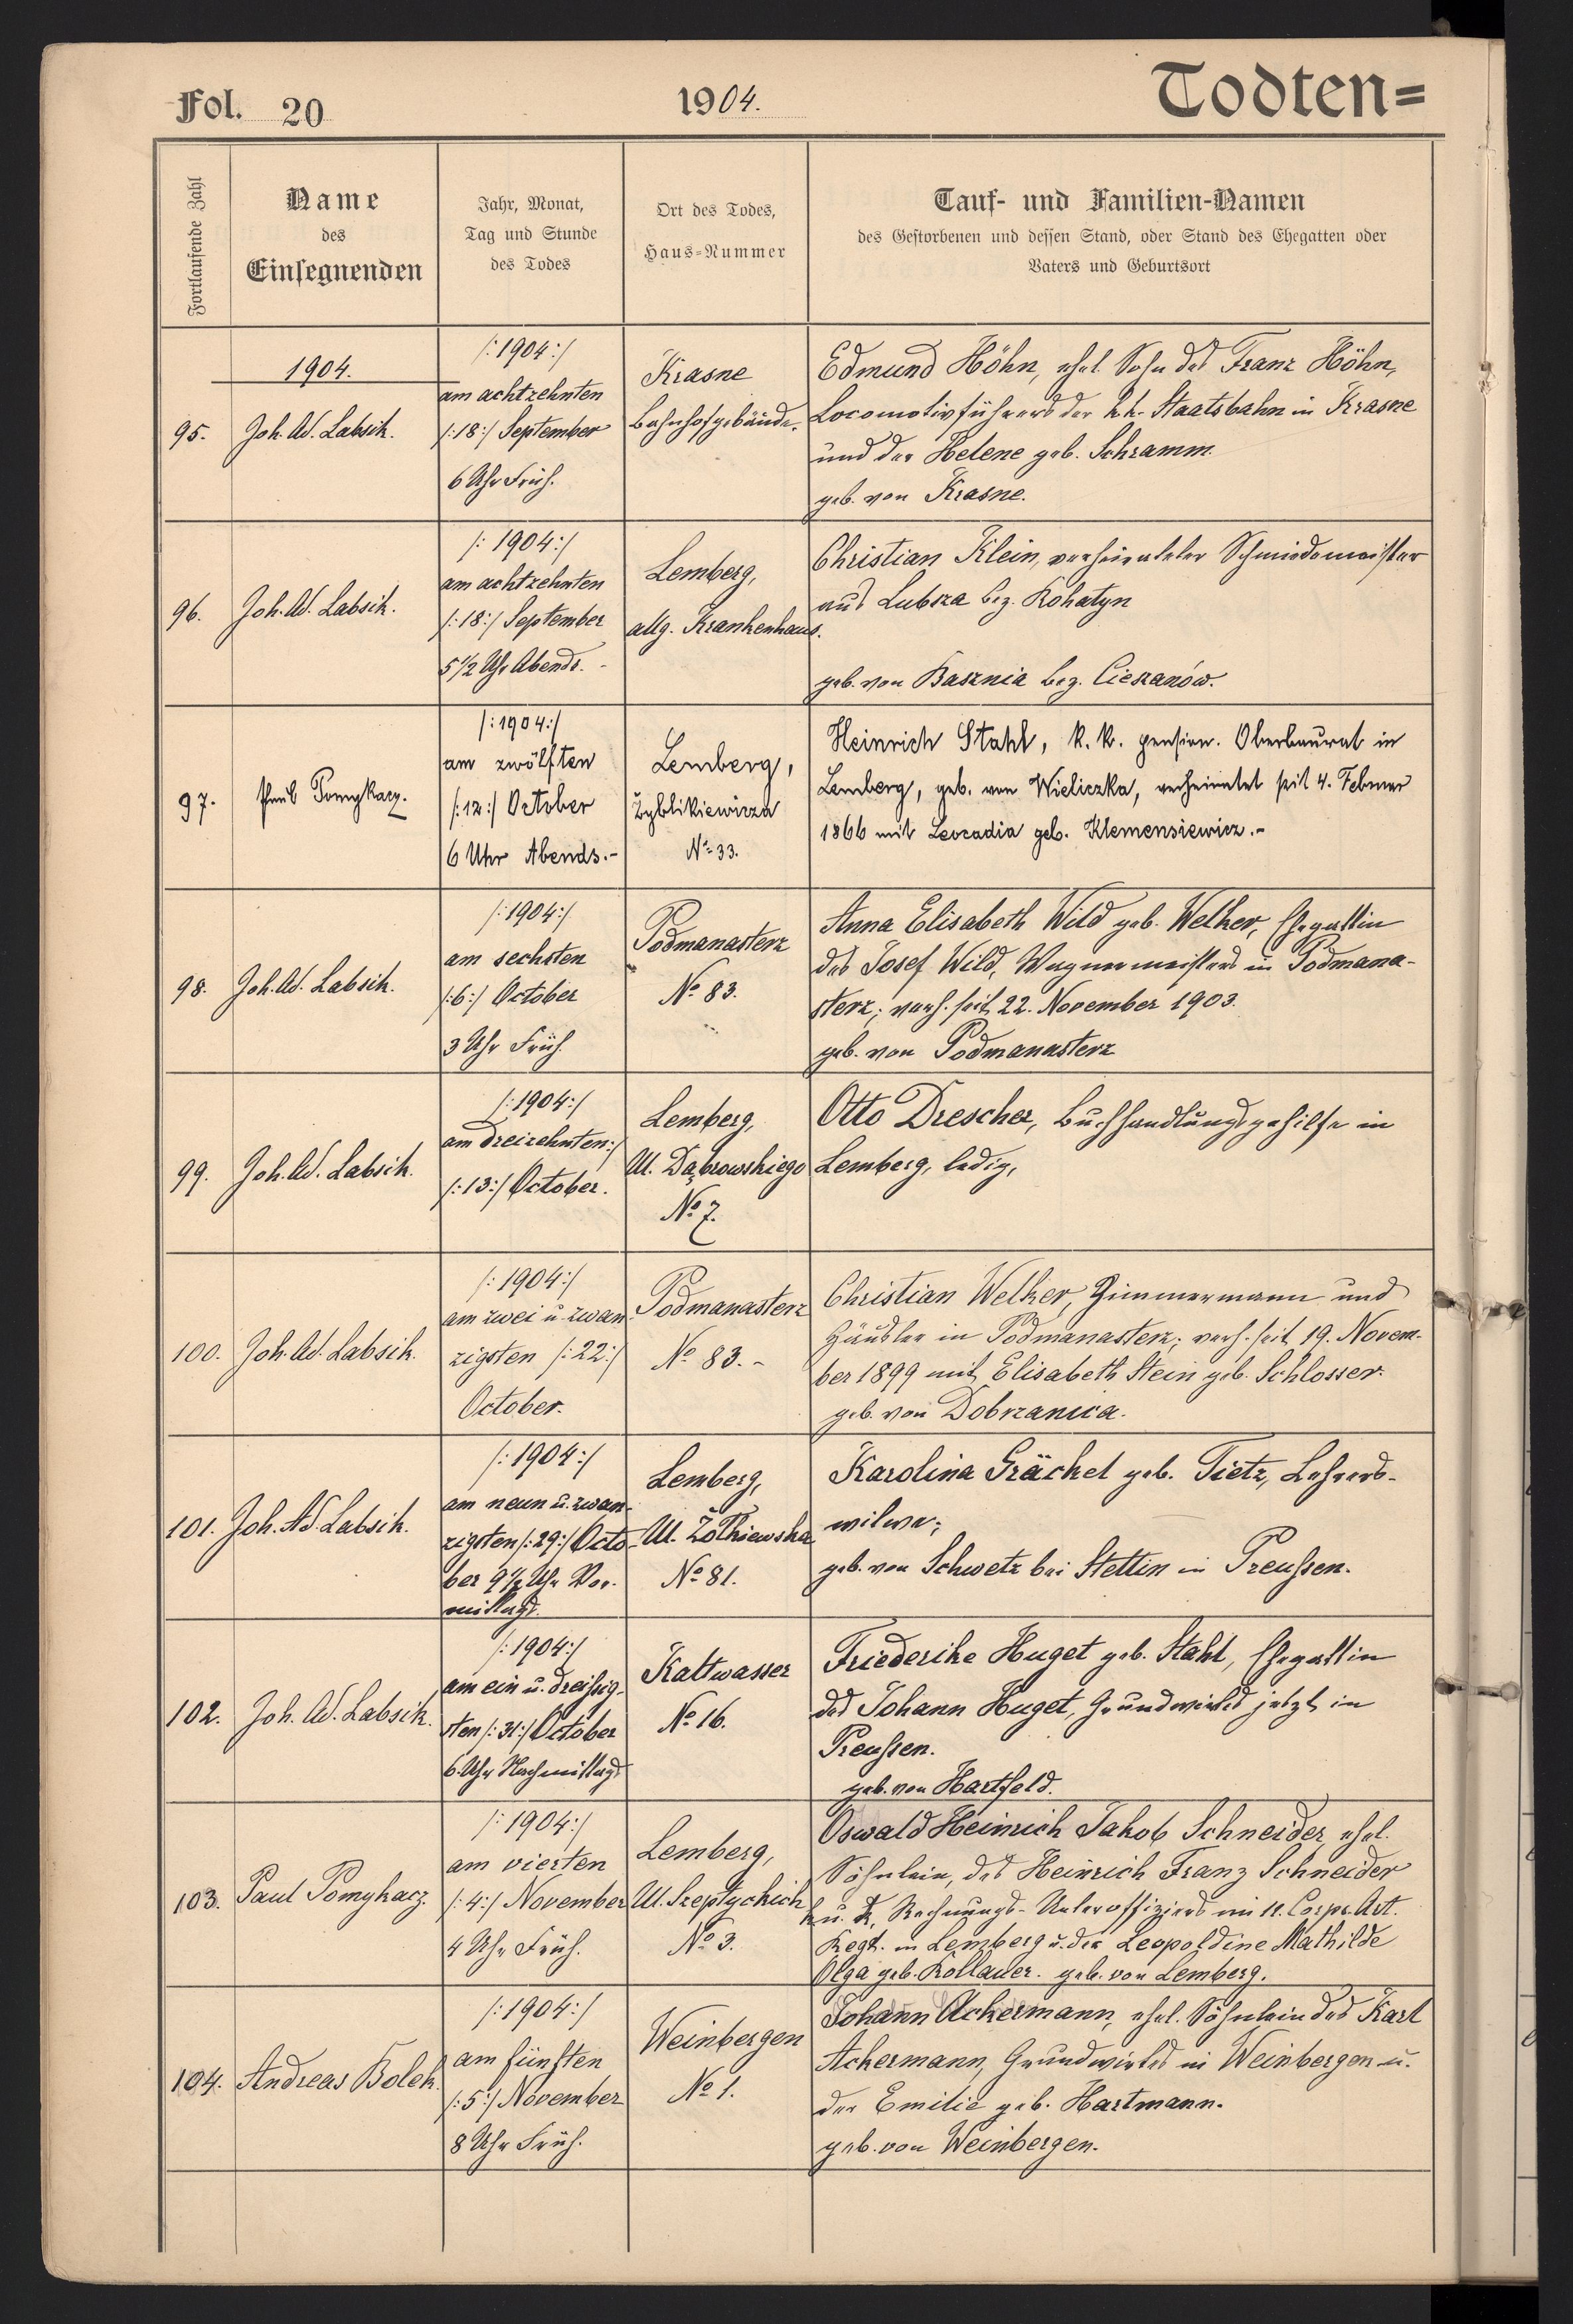 Fol. 20
1904.
Todten=
Fortlaufende Zahl
Name
des
Einsegnenden
Jahr, Monat,
Tag und Stunde
des Todes
Ort des Todes,
Haus=Nummer
Tauf- und Familien-Namen
des Gestorbenen und dessen Stand, oder Stand des Ehegatten oder
Vaters und Geburtsort
1904.
95.
Joh. Ad. Labsik.
/:1904:/
am achtzehnten
/:18:/ September
6 Uhr Früh.
Krasne
Bahnhofgebäude.
Edmund Höhn, ehel. Sohn des Franz Höhn,
Locomotivführers der k.k. Staatsbahn in Krasne
und der Helene geb. Schramm.
geb. von Krasne.
96.
Joh. Ad. Labsik.
/:1904:/
am achtzehnten
/:18:/ September
5 1/2 Uhr Abends. -
Lemberg,
allg. Krankenhaus.
Christian Klein, verheirateter Schmiedemeister
aus Lubsza bez. Rohatyn
geb. von Basznia bez. Cieszanów.
97.
Paul Pomykacz.
/:1904:/
am zwölften
/:12:/ October
6 Uhr Abends.-
Lemberg,
Zyblikiewicza
No 33.
Heinrich Stahl, k. k. pension. Oberbaurat in
Lemberg, geb. von Wieliczka, verheiratet seit 4. Februar
1866 mit Leocadia geb. Klemensiewicz.-
98.
Joh. Ad. Labsik.
/:1904:/
am sechsten
/:6:/ October
3 Uhr Früh.
Podmanasterz
No 83.
Anna Elisabeth Wild geb. Welker, Ehegattin
des Josef Wild, Wagnermeisters in Podmana-
sterz; verh. seit 22. November 1903.
geb. von Podmanasterz
99.
Joh. Ad. Labsik.
/:1904:/
am dreizehnten:/
/:13:/ October.
Lemberg,
Ul. Dąbrowskiego
No 7.
Otto Drescher, Buchhandlungsgehilfe in
Lemberg, ledig,
100.
Joh. Ad. Labsik.
/:1904:/
am zwei u. zwan-
zigsten /:22:/
October.
Podmanasterz
No 83. -
Christian Welker, Zimmermann und
Häusler in Podmanasterz; verh. seit 19. Novem-
ber 1899 mit Elisabeth Stein geb. Schlosser.
geb. von Dobrzanica.
101.
Joh. Ad. Labsik.
/:1904:/
am neun u. zwan-
zigsten /:29:/ Octo-
ber 9 1/2 Uhr Vor-
mittags.
Lemberg,
Ul. Żołkiewska
No 81.
Karolina Gräckel geb. Tietz, Lehrers-
witwe;
geb. von Schwetz bei Stettin in Preußen.
102.
Joh. Ad. Labsik.
/:1904:/
am ein u. dreißig-
sten /:31:/ October
6 Uhr Nachmittags
Kaltwasser
No 16.
Friederike Huget geb. Stahl, Ehegattin
des Johann Huget, Grundwirtes jetzt in
Preußen.
geb. von Hartfeld.
103.
Paul Pomykacz.
/:1904:/
am vierten
/:4:/ November
4 Uhr Früh.
Lemberg,
Ul. Szeptyckich
No 3.
Oswald Heinrich Jakob Schneider, ehel.
Söhnlein, des Heinrich Franz Schneider
k. u. k. Rechnungs-Unteroffiziers im 11. Corps. Art.
Regt. in Lemberg u. der Leopoldine Mathilde
Olga geb. Kollauer. geb. von Lemberg.
104.
Andreas Bolek.
/:1904:/
am fünften
/:5:/ November
8 Uhr Früh.
Weinbergen
No 1.
Johann Ackermann, ehel. Söhnlein des Karl
Ackermann, Grundwirtes in Weinbergen u.
der Emilie geb. Hartmann.
geb. von Weinbergen.